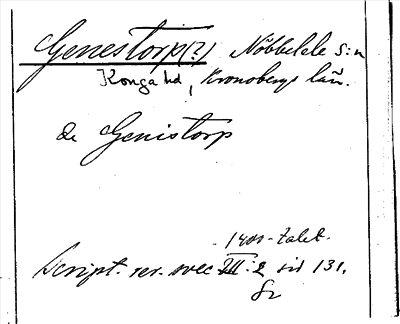 Genestorp(?) Nöbbelele s:n
Konga hd, Kronobergs län.
de Genistorp
1400-talet.
Script. rer. svec III:2 sid 131.